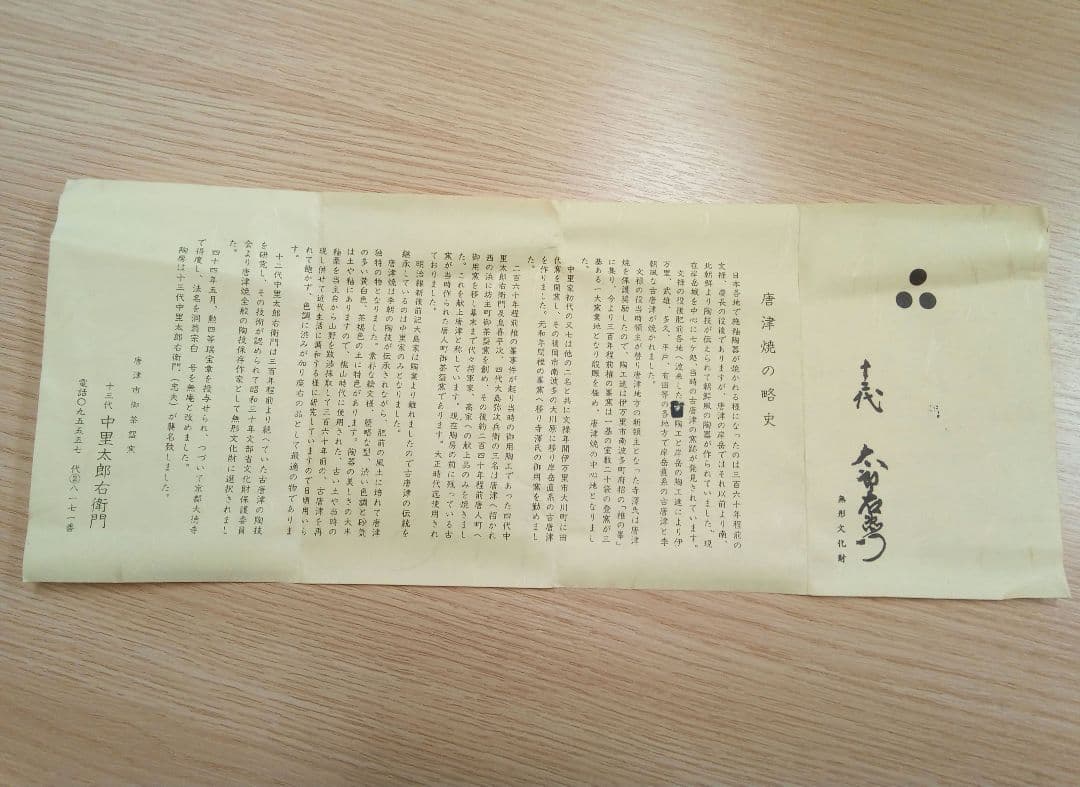 十三代 太郎右衛門
無形文化財
唐津焼の略史
日本各地で施釉陶器が焼かれる様になったのは三百六十年程前の
文禄、慶長の役後でありますが、唐津の岸岳ではそれ以前より南、
北朝鮮より陶技が伝えられて朝鮮風の陶器が作られていました、現
在岸岳城を中心に七ケ処当時の古唐津の窯跡が発見されています。
文禄の役後肥前各地へ渡来した 陶工と岸岳の陶工達により伊
万里、武雄、多久、平戸、有田等の各地方で岸岳直系の古唐津と李
朝風な古唐津が焼かれました。
文禄の役当時領主が替り唐津地方の新領主となった寺澤氏は唐津
焼を保護奨励したので、陶工達は伊万里市南波多町府招の「椎の峯」
に集り、今より三百年程前椎の峯窯は一基の室数二十袋の登窯が三
基ある一大窯業地となり殷賑を極め、唐津焼の中心地となりまし
た。
中里家初代の又七は他の二名と共に文禄年間伊万里市大川町に田
代窯を開窯し、その後同市南波多の大川原に移り岸岳直系の古唐津
を作りました。元和年間椎の峯窯へ移り寺澤氏の御用窯を勤めまし
た。
二百六十年程前椎の峯事件が起り当時の御用陶工であった四代中
里太郎右衛門及息喜平次、四代大島弥次兵衛の三名は唐津へ招かれ
西の浜に坊主町御茶盌窯を創め、その後約二百四十年程前唐人町へ
御用窯を移し幕末まで代々将軍家、高家への献上品のみを焼きまし
た。これを献上唐津と称しています。現在陶房の前に残っている古
窯が当時作られた唐人町御茶盌窯であります。大正時代迄使用され
ておりました。
明治維新後前記大島家は陶業より離れましたので古唐津の伝統を
継承しているのは中里家のみとなりました。
唐津焼は李朝の陶技が伝承されながら、肥前の風土に培れて唐津
独特の物となりました。素朴な絵文様、簡略な型、渋い色調と砂気
の多い黄白色、茶褐色の土に特色があります。陶器の美しさの大半
は土や釉にありますので、桃山時代に使用された、古い土や当時の
釉薬を当主自から山野を跋渉採取して三百六十年前の、古唐津を再
現し併せて近代生活に調和する様に研究していますので日頃用いら
れて飽かず、色調に渋みが加り座右の品として、最適の物でありま
す。
十二代中里太郎右衛門は三百年程前より絶へていた古唐津の陶技
を研究し、その技術が認められて昭和三十年文部省文化財保護委員
会より唐津焼全般の陶技保存作家として無形文化財に選択されまし
た。
四十四年五月、勲四等瑞宝章を授与せられ、つづいて京都大徳寺
で得度し、法名を洞翁宗白 号を無庵と改めました。
陶房は十三代中里太郎右衛門、(忠夫)が襲名致しました。
唐津市御茶盌窯
十三代 中里太郎右衛門
電話〇九五五七 代②八一七一番